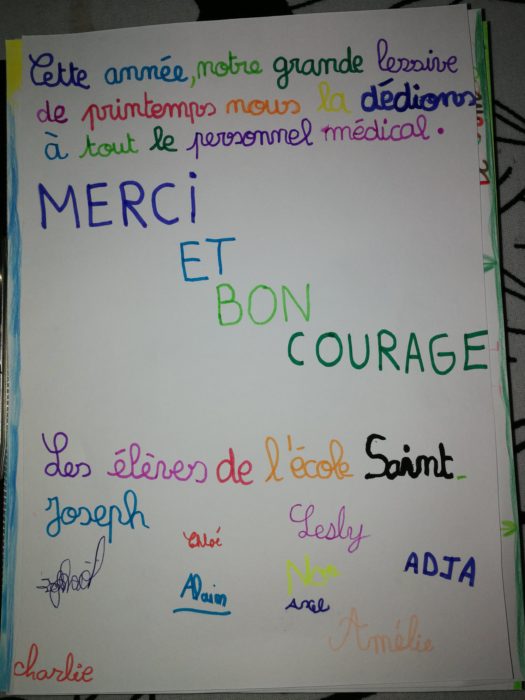 Cette année, notre grande lessive
de printemps nous la dédions
à tout le personnel médical.
MERCI
ET
BON
COURAGE
Les élèves de l'école Saint-
Joseph
Lesly
Chloé
ADJA
Axel
Amélie
charlie